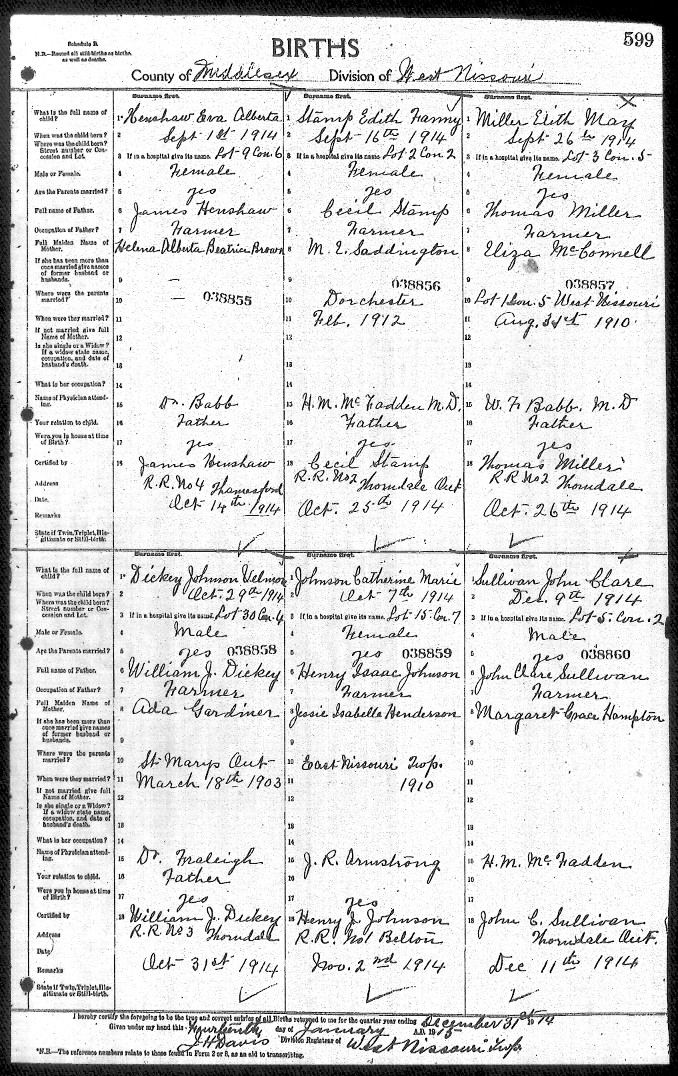 Schedule B.
N.B.—Record all still-births as births, as well as deaths.
BIRTHS
599
County of Middlesex Division of West Nissouri
Surname first. Surname first. Surname first.
What is the full name of child? 1 Henshaw Eva Alberta 1 Stamp Edith Fanny 1 Miller Edith May
When was the child born? 2 Sept 1st 1914 2 Sept 16th 1914 2 Sept 26th 1914
Where was the child born? Street number or Concession and Lot. 3 If in a hospital give its name. Lot 9 Con. 6 3 If in a hospital give its name. Lot 2 Con 2 3 If in a hospital give its name. Lot 3 Con. 5
Male or Female. 4 Female 4 Female 4 Female
Are the Parents married? 5 yes 5 yes 5 yes
Full name of Father. 6 James Henshaw 6 Cecil Stamp 6 Thomas Miller
Occupation of Father? 7 Farmer 7 Farmer 7 Farmer
Full Maiden Name of Mother. 8 Helena Alberta Beatrice Brown 8 M. E. Saddington 8 Eliza McConnell
If she has been more than once married give names of former husband or husbands. 9 — 9 038856 9 038857
Where were the parents married? 10 — 038855 10 Dorchester 10 Lot 1 Con. 5 West Nissouri
When were they married? 11 11 Feb. 1912 11 Aug. 31st 1910
If not married give full Name of Mother. 12 12 12
Is she single or a Widow? If a widow state name, occupation, and date of husband's death. 13 13 13
What is her occupation? 14 14 14
Name of Physician attending. 15 Dr. Babb 15 H. M. McFadden M.D. 15 W. F. Babb. M.D
Your relation to child. 16 Father 16 Father 16 Father
Were you in house at time of Birth? 17 yes 17 yes 17 yes
Certified by 18 James Henshaw 18 Cecil Stamp 18 Thomas Miller
Address R.R. No 4 Thamesford R.R. No 2 Thorndale Ont R.R No 2 Thorndale
Date. Oct 14th 1914 Oct. 25th 1914 Oct. 26th 1914
Remarks
State if Twin, Triplet, Illegitimate or Still-birth.
Surname first. Surname first. Surname first.
What is the full name of child? 1 Dickey Johnson Velmore 1 Johnson Catherine Marie 1 Sullivan John Clare
When was the child born? 2 Oct. 29th 1914 2 Oct 7th 1914 2 Dec. 9th 1914
Where was the child born? Street number or Concession and Lot. 3 If in a hospital give its name. Lot 30 Con. 4 3 If in a hospital give its name. Lot 15 Con. 7 3 If in a hospital give its name. Lot 5 Con. 2
Male or Female. 4 Male 4 Female 4 Male
Are the Parents married? 5 yes 038858 5 yes 038859 5 yes 038860
Full name of Father. 6 William J. Dickey 6 Henry Isaac Johnson 6 John Clare Sullivan
Occupation of Father? 7 Farmer 7 Farmer 7 Farmer
Full Maiden Name of Mother. 8 Ada Gardiner 8 Jessie Isabella Henderson 8 Margaret Grace Hampton
If she has been more than once married give names of former husband or husbands. 9 9 9
Where were the parents married? 10 St Marys Ont 10 East Nissouri Twp. 10
When were they married? 11 March 18th 1903 11 1910 11
If not married give full Name of Mother. 12 12 12
Is she single or a Widow? If a widow state name, occupation, and date of husband's death. 13 13 13
What is her occupation? 14 14 14
Name of Physician attending. 15 Dr. Fraleigh 15 J. R. Armstrong 15 H. M. McFadden
Your relation to child. 16 Father 16 16
Were you in house at time of Birth? 17 yes 17 yes 17
Certified by 18 William J. Dickey 18 Henry J. Johnson 18 John C. Sullivan
Address R.R No 3 Thorndale R.R. No 1 Belton Thorndale Ont.
Date Oct 31st 1914 Nov. 2nd 1914 Dec 11th 1914
Remarks
State if Twin, Triplet, Illegitimate or Still-birth.
I hereby certify the foregoing to be the true and correct entries of all Births returned to me for the quarter year ending December 31st 1914
Given under my hand this fourteenth day of January A.D. 1915
J H Davis Division Registrar of West Nissouri Twp
*N.B.—The reference numbers relate to those found in Form 2 or 3, as an aid to transcribing.